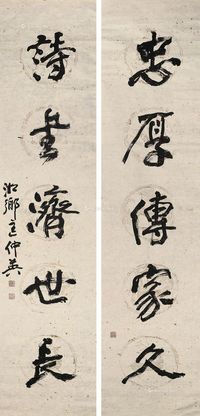 忠厚傳家久
詩書濟世長
湘鄉匡仲英